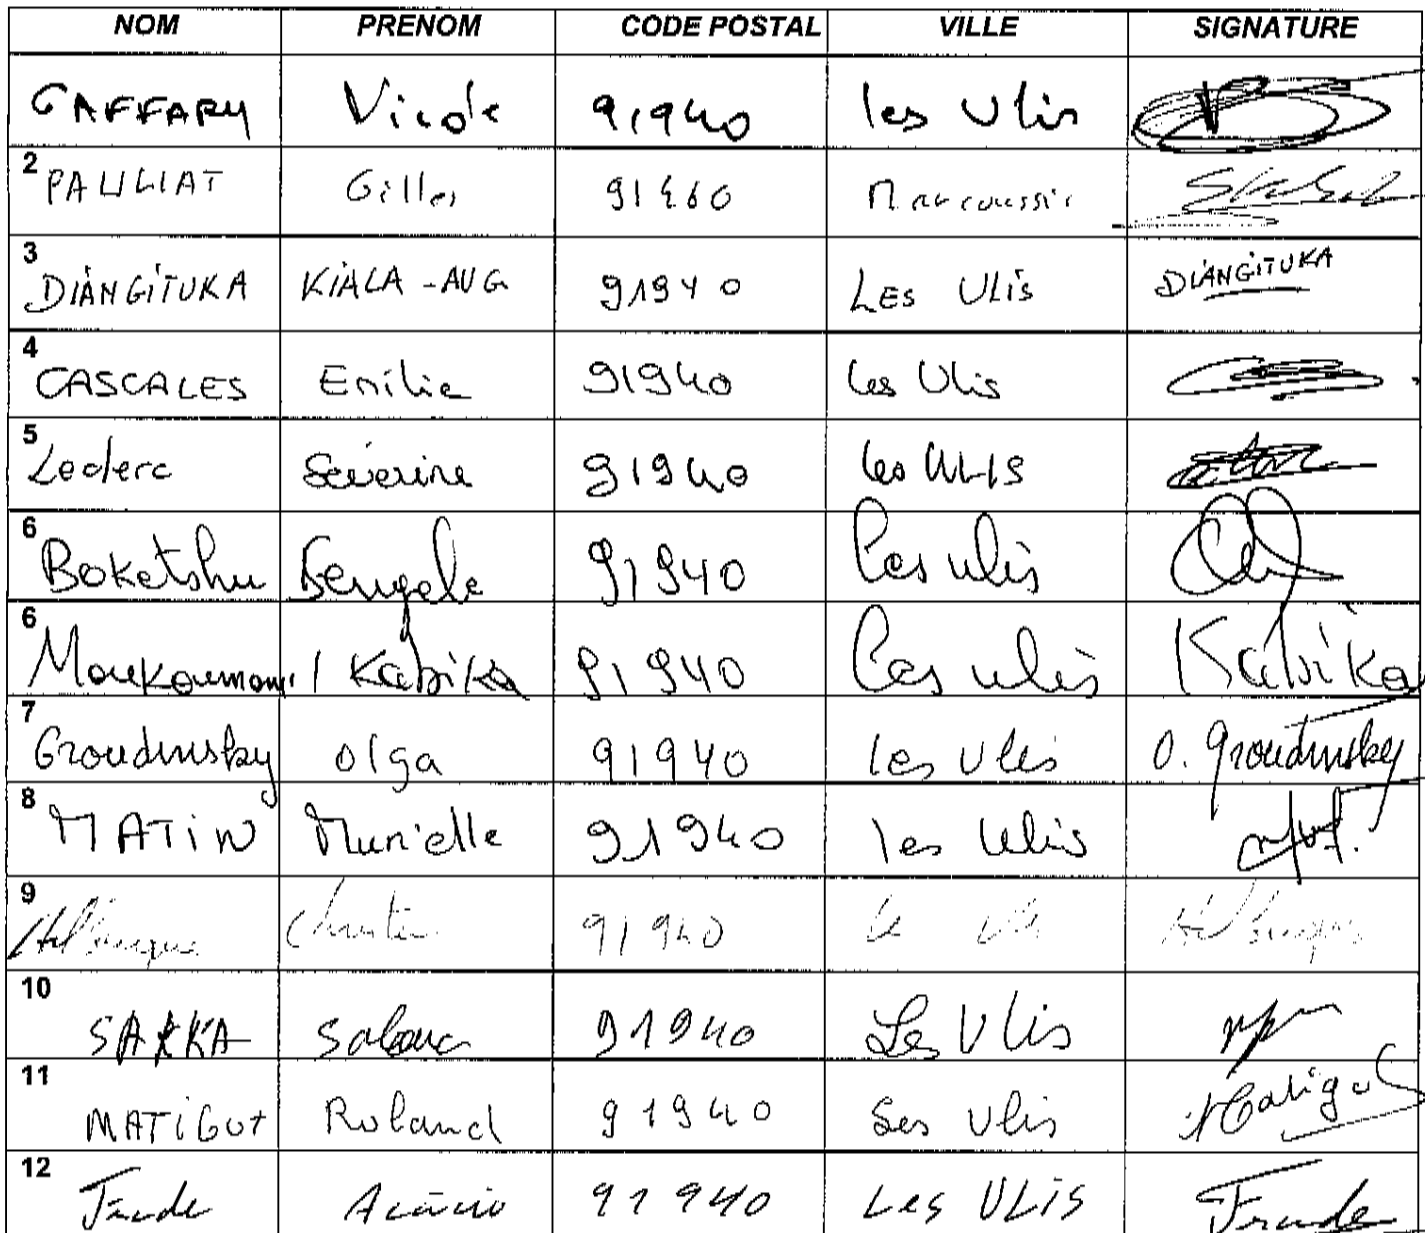 NOM PRENOM CODE POSTAL VILLE SIGNATURE
GAFFARY Nicole 91940 les Ulis
2 PAULIAT Gilles 91460 Marcoussis
3 DIANGITUKA KIALA-AUG 91940 LES ULiS DIANGITUKA
4 CASCALES Emilie 91940 les Ulis
5 Leclerc Séverine 91940 les ULIS
6 Boketshu Bengele 91940 Les ulis
6 Kabika 91940 Les ulis Kabika
7 Groudinsky Olga 91940 les Ulis O. Groudinsky
8 MATiN Murielle 91940 les Ulis
9 91940
10 SAKKA 91940 Les Ulis
11 MATiGOT Roland 91940 Les Ulis
12 Frade Acácio 91940 Les ULiS Frade